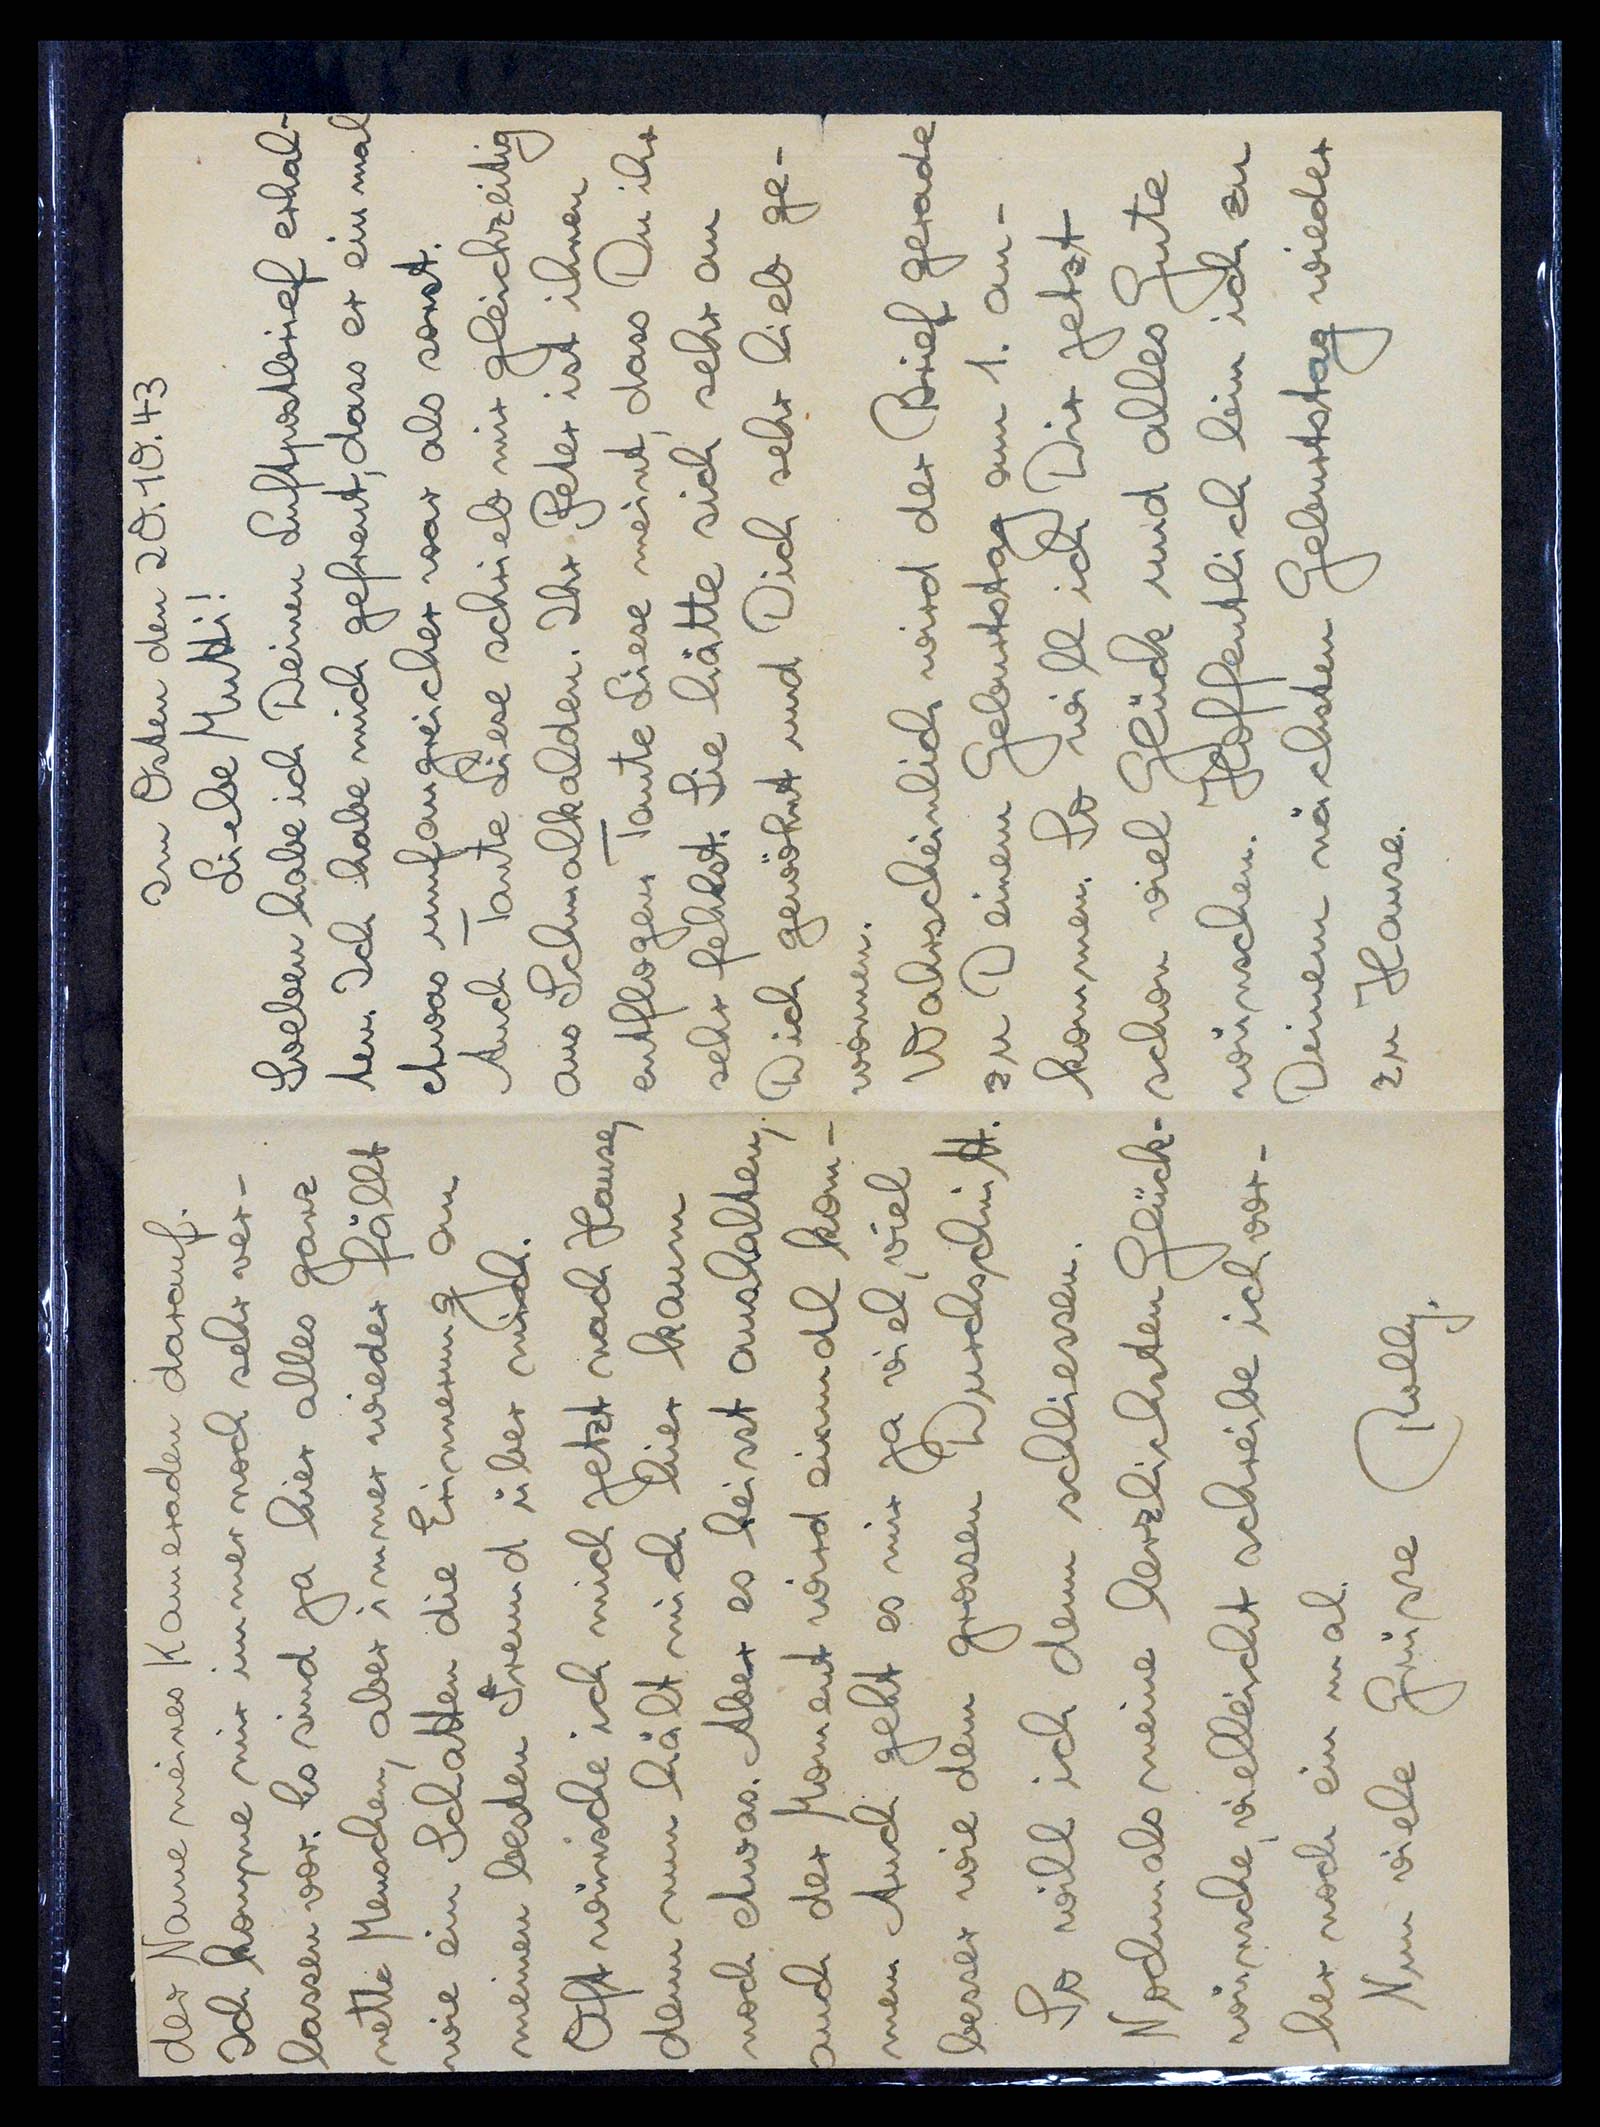 Im Osten den 20.10.43
Liebe Mutti!
Soeben habe ich Deinen Luftpostbrief erhal-
ten. Ich habe mich gefreut, dass er ein mal
etwas umfangreicher war als sonst.
Auch Tante Liese schrieb mir gleichzeitig
aus Schmalkalden. Ihr Peter ist ihnen
entflogen. Tante Liese meint, dass Du ihr
sehr fehlst. Sie hätte sich sehr an
Dich gewöhnt und Dich sehr lieb ge-
wonnen.
Wahrscheinlich wird der Brief gerade
zu Deinem Geburtstag am 1. an-
kommen. So will ich Dir jetzt
schon viel Glück und alles Gute
wünschen. Hoffentlich bin ich zu
Deinem nächsten Geburtstag wieder
zu Hause.
der Name meines Kameraden darauf.
Ich komme mir immer noch sehr ver-
lassen vor. Es sind ja hier alles ganz
nette Menschen, aber immer wieder fällt
wie ein Schatten die Erinnerung an
meinen besten Freund über mich.
Oft wünsche ich mich jetzt nach Hause,
denn nun hält mich hier kaum
noch etwas. Aber es heisst aushalten,
auch der Moment wird einmal kom-
men. Auch geht es mir ja viel, viel
besser wie dem grossen Durchschnitt.
So will ich denn schliessen.
Nochmals meine herzlichsten Glück-
wünsche, vielleicht schreibe ich vor-
her noch ein mal.
Nun viele Grüsse Rolly.